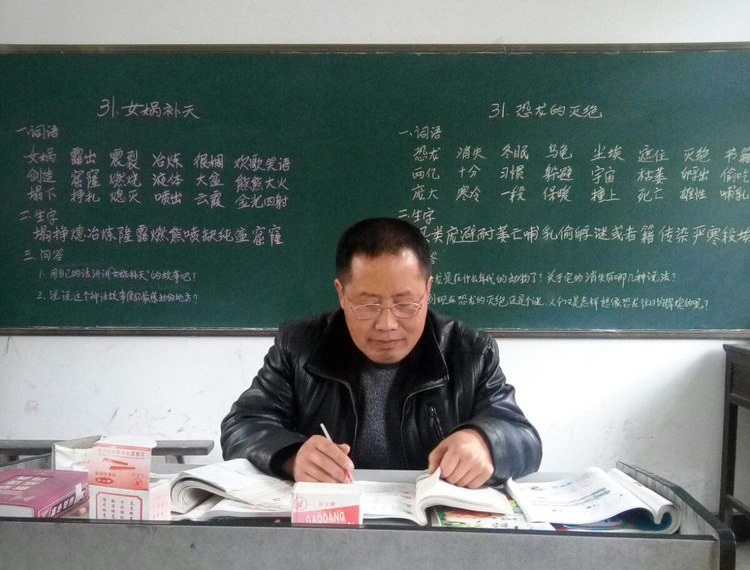 31.女娲补天
一.词语
女娲 露出 震裂 冶炼 很烟 欢歌笑语
创造 窟窿 燃烧 液体 大盆 熊熊大火
塌下 挣扎 熄灭 喷出 云霞 金光四射
二.生字
塌挣熄冶炼隆露燃熊喷缺纯盆窟窿
三.问答
1.用自己的话讲讲"女娲补天"的故事吧?
2.说说这个神话故事使你最感动的地方?
31.恐龙的灭绝
一.词语
恐龙 消失 冬眠 乌龟 尘埃 遮住 灭绝 书籍
两亿 十分 习惯 躲避 宇宙 枯萎 孵出 偷吃
庞大 寒冷 一段 保暖 撞上 死亡 雄性 哺乳
二.生字
类庞避耐萎亡哺乳偷孵谜或者籍传染严寒段埃
答
龙是在什么年代的动物了?关于它的消失有哪几种说法?
到现在恐龙的灭绝还是个谜.人们又是怎样想像恐龙
GAODANG